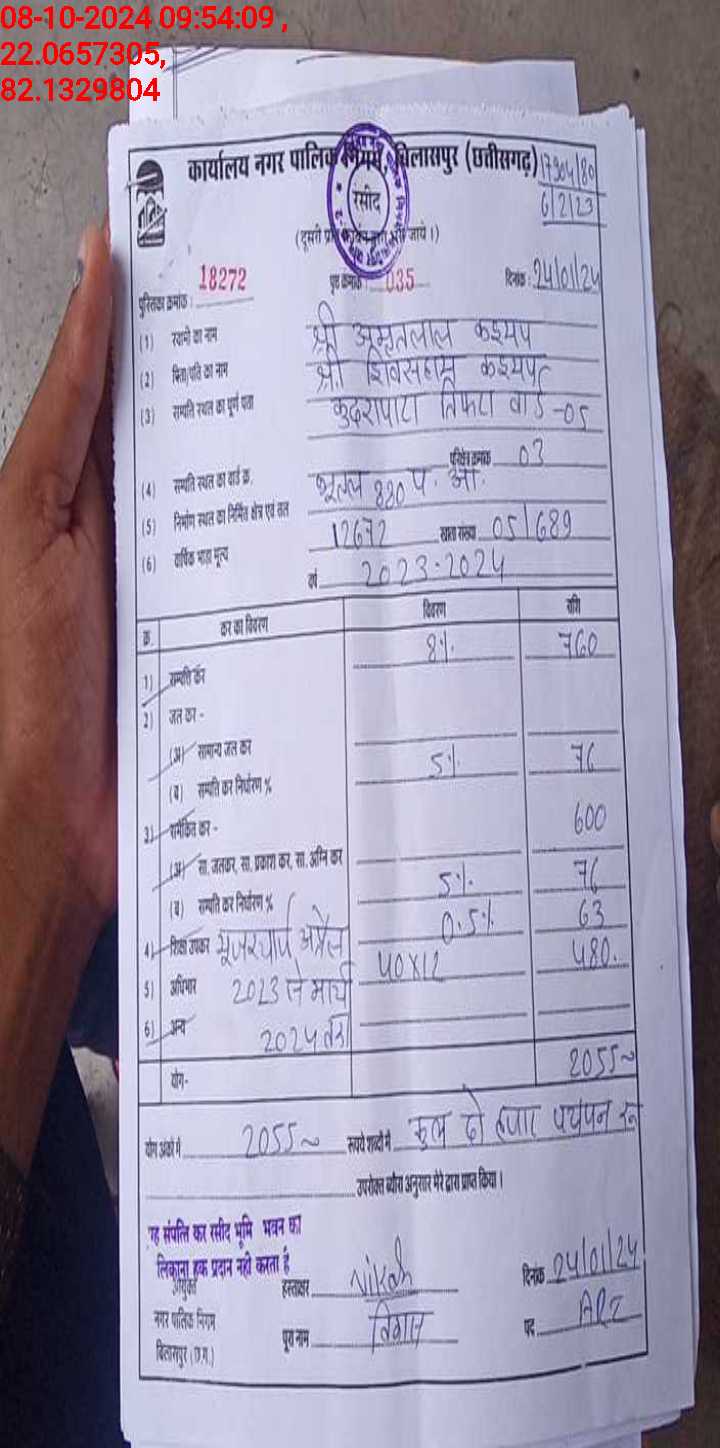 08-10-2024 09:54:09 ,
22.0657305,
82.1329804
कार्यालय नगर पालिक निगम, बिलासपुर (छत्तीसगढ़)
17904/80
6/2/23
रसीद
(दूसरी प्रति कार्बन लगाकर भरी जाये।)
पुस्तिका क्रमांक : 18272 पृष्ठ क्रमांक 035 दिनांक : 24/01/24
(1) स्वामी का नाम श्री अमृतलाल कश्यप
(2) पिता/पति का नाम श्री शिवसहाय कश्यप
(3) सम्पत्ति स्थल का पूर्ण पता कुदरापारा तिफरा वार्ड-05
(4) सम्पत्ति स्थल का वार्ड क्र. परिक्षेत्र क्रमांक 03
(5) निर्माण स्थल का निर्मित क्षेत्र एवं तल भूतल 880 प. आ.
(6) वार्षिक भाड़ा मूल्य 12672 खाता संख्या 05/689
वर्ष 2023-2024
क्र. कर का विवरण विवरण राशि
1) सम्पत्ति कर 8% 760
2) जल कर -
(अ) सामान्य जल कर
(ब) सम्पत्ति कर निर्धारण % 5% 76
3) समेकित कर - 600
(अ) सा. जलकर, सा. प्रकाश कर, सा. अग्नि कर
(ब) सम्पत्ति कर निर्धारण % 5% 76
4) शिक्षा उपकर 0.5% 63
यूजरचार्ज अप्रैल 40X12 480.
5) अधिभार 2023 से मार्च
6) अन्य 2024 तक
योग- 2055~
योग अंकों में 2055~ रूपये शब्दों में कुल दो हजार पचपन रू
उपरोक्त ब्यौरा अनुसार मेरे द्वारा प्राप्त किया।
यह संपत्ति कर रसीद भूमि भवन का
लिकाना हक प्रदान नही करता है
आयुक्त हस्ताक्षर Vikash दिनांक 24/01/24
नगर पालिक निगम पूरा नाम विकास पद ARI
बिलासपुर (छ.ग.)